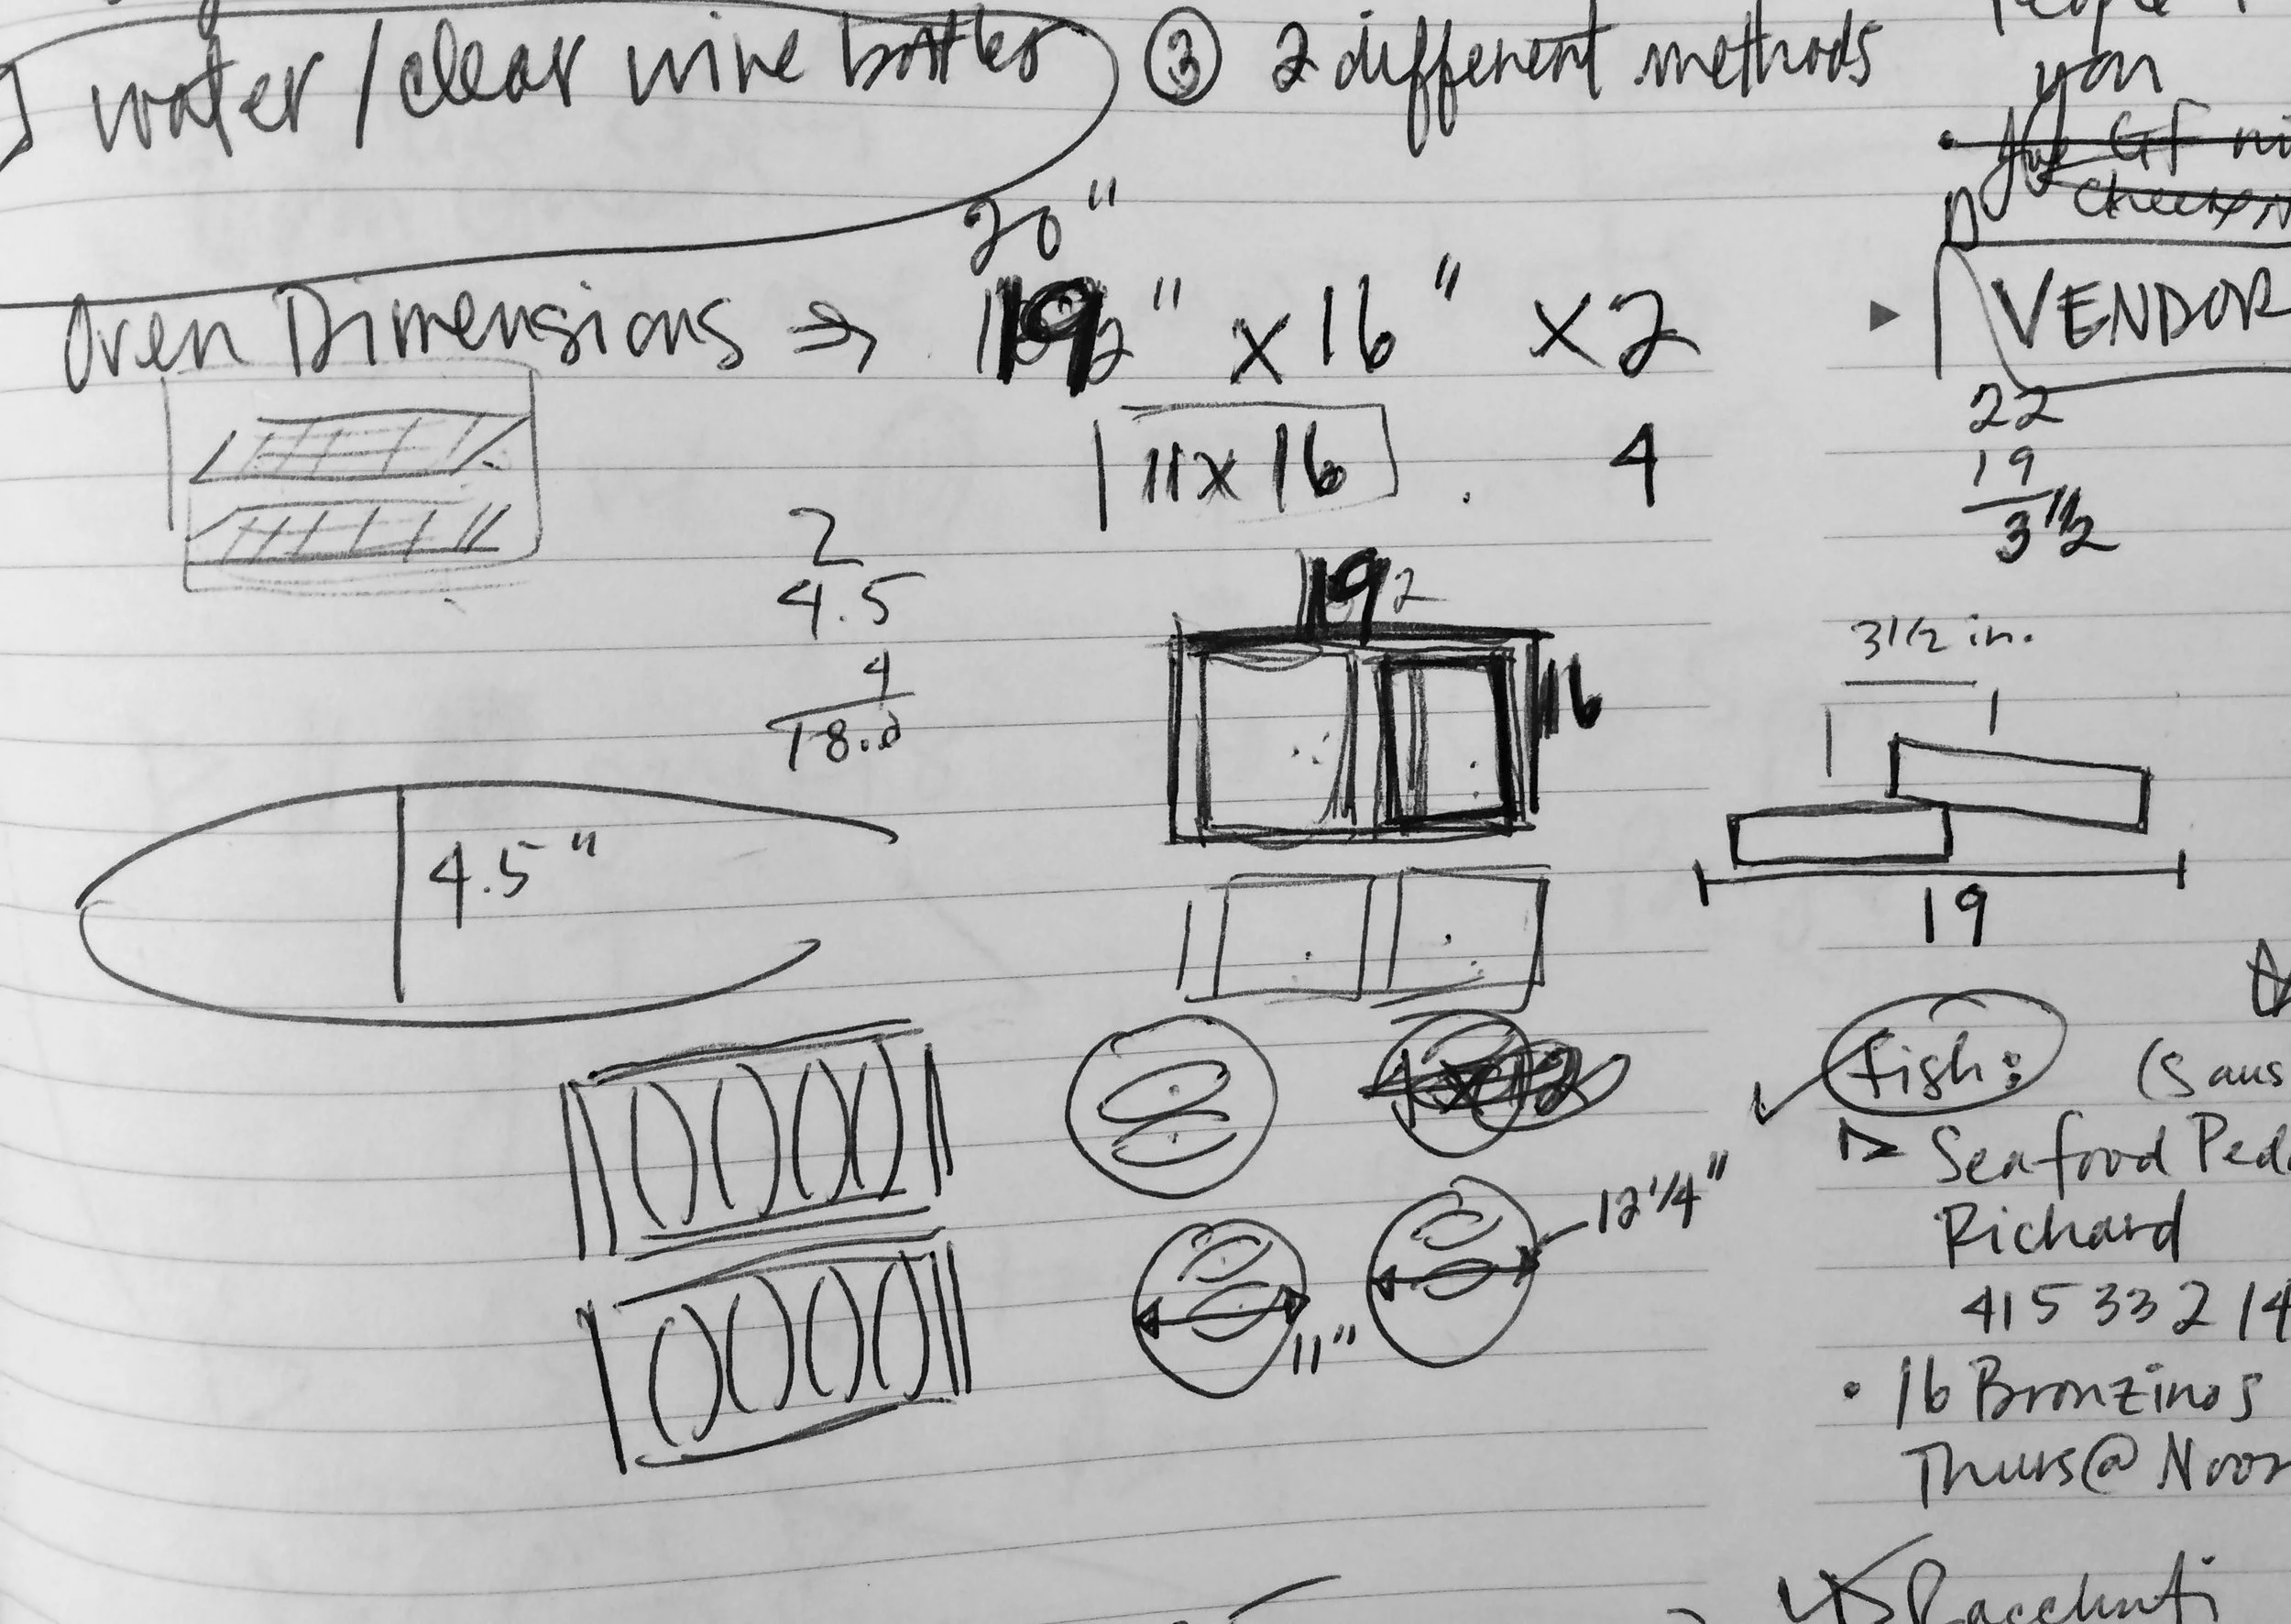 water/clear wine bottles
③ 2 different methods
you
GF
VENDOR
20"
Oven Dimensions ⇒ 19" x 16" x 2
11 x 16 4
22
19
3 1/2
2
4.5
4
18.0
19
16
3 1/2 in.
19
4.5"
12 1/4"
11"
fish:
Seafood
Richard
415 332 14
• 16 Bronzinos
Thurs @ Noon